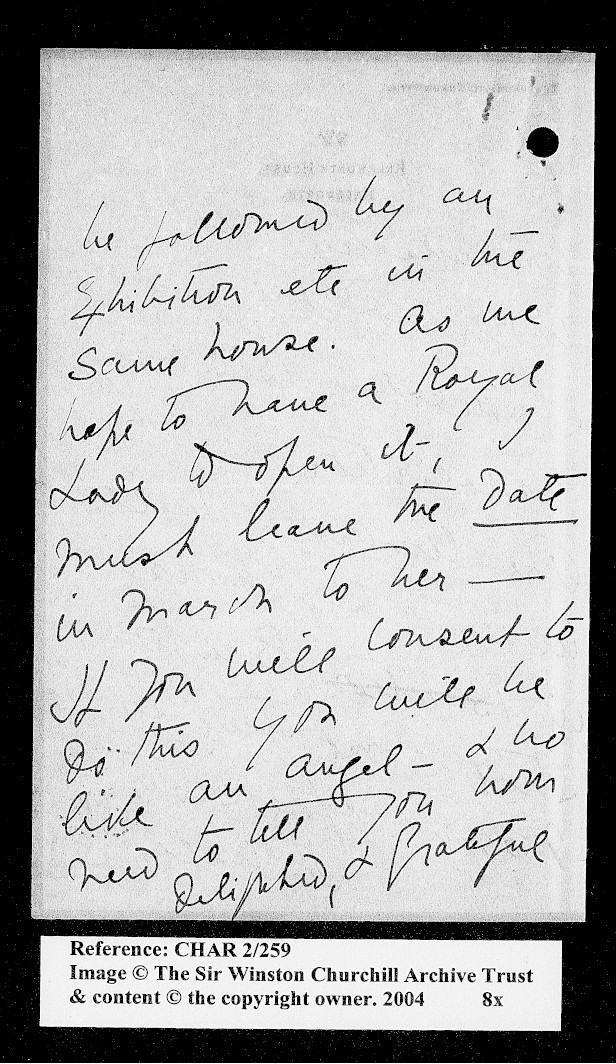 be followed by an
Exhibition etc in the
same house. As we
hope to have a Royal
Lady to open it, I
must leave the Date
in March to her —
If you will consent to
do this you will be
like an angel – & no
need to tell you how
delighted, & grateful
Reference: CHAR 2/259
Image © The Sir Winston Churchill Archive Trust
& content © the copyright owner. 2004 8x